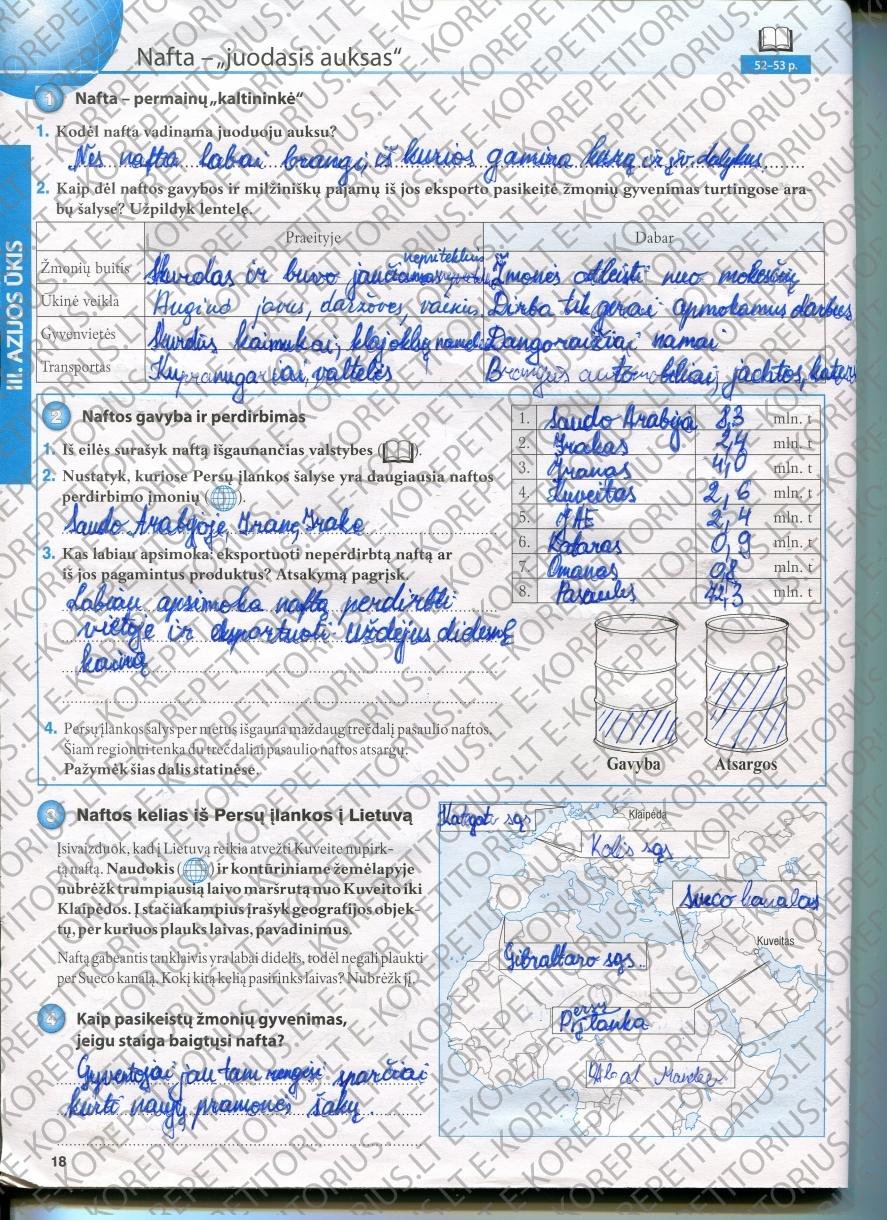 Nafta – „juodasis auksas“
52–53 p.
1 Nafta – permainų „kaltininkė“
1. Kodėl nafta vadinama juoduoju auksu?
Nes nafta labai brangi, iš kurios gamina kurą ir įv. dalykus.
2. Kaip dėl naftos gavybos ir milžiniškų pajamų iš jos eksporto pasikeitė žmonių gyvenimas turtingose ara-
bų šalyse? Užpildyk lentelę.
Praeityje Dabar
Žmonių buitis Skurdas ir buvo jaučiamas nepriteklius Žmonės atleisti nuo mokesčių
Ūkinė veikla Augino javus, daržoves, vaisius Dirba tik gerai apmokamus darbus
Gyvenvietės Skurdūs kaimukai, klajoklių namel. Dangoraižiai namai
Transportas Kupranugariai, valtelės Brangūs automobiliai, jachtos, kater
III. AZIJOS ŪKIS
2 Naftos gavyba ir perdirbimas
1. Iš eilės surašyk naftą išgaunančias valstybes ( ).
2. Nustatyk, kuriose Persų įlankos šalyse yra daugiausia naftos
perdirbimo įmonių ( ).
Saudo Arabijoje, Irane, Irake
3. Kas labiau apsimoka: eksportuoti neperdirbtą naftą ar
iš jos pagamintus produktus? Atsakymą pagrįsk.
Labiau apsimoka naftą perdirbti
vietoje ir eksportuoti uždėjus didesnę
kainą
1. Saudo Arabija 8,3 mln. t
2. Irakas 2,4 mln. t
3. Iranas 4,0 mln. t
4. Kuveitas 2,6 mln. t
5. JAE 2,4 mln. t
6. Kataras 0,9 mln. t
7. Omanas 0,8 mln. t
8. Pasaulis 72,3 mln. t
4. Persų įlankos šalys per metus išgauna maždaug trečdalį pasaulio naftos.
Šiam regionui tenka du trečdaliai pasaulio naftos atsargų.
Pažymėk šias dalis statinėse.
Gavyba Atsargos
3 Naftos kelias iš Persų įlankos į Lietuvą
Įsivaizduok, kad į Lietuvą reikia atvežti Kuveite nupirk-
tą naftą. Naudokis ( ) ir kontūriniame žemėlapyje
nubrėžk trumpiausią laivo maršrutą nuo Kuveito iki
Klaipėdos. Į stačiakampius įrašyk geografijos objek-
tų, per kuriuos plauks laivas, pavadinimus.
Naftą gabenantis tanklaivis yra labai didelis, todėl negali plaukti
per Sueco kanalą. Kokį kitą kelią pasirinks laivas? Nubrėžk jį.
Kategato sąs
Klaipėda
Kalė sąs
Sueco kanalas
Kuveitas
Gibraltaro sąs.
Persų
įlanka
4 Kaip pasikeistų žmonių gyvenimas,
jeigu staiga baigtųsi nafta?
Gyventojai jau tam rengėsi sparčiai
kurti naujų pramonės šakų.
18
E-KOREPETITORIUS.LT